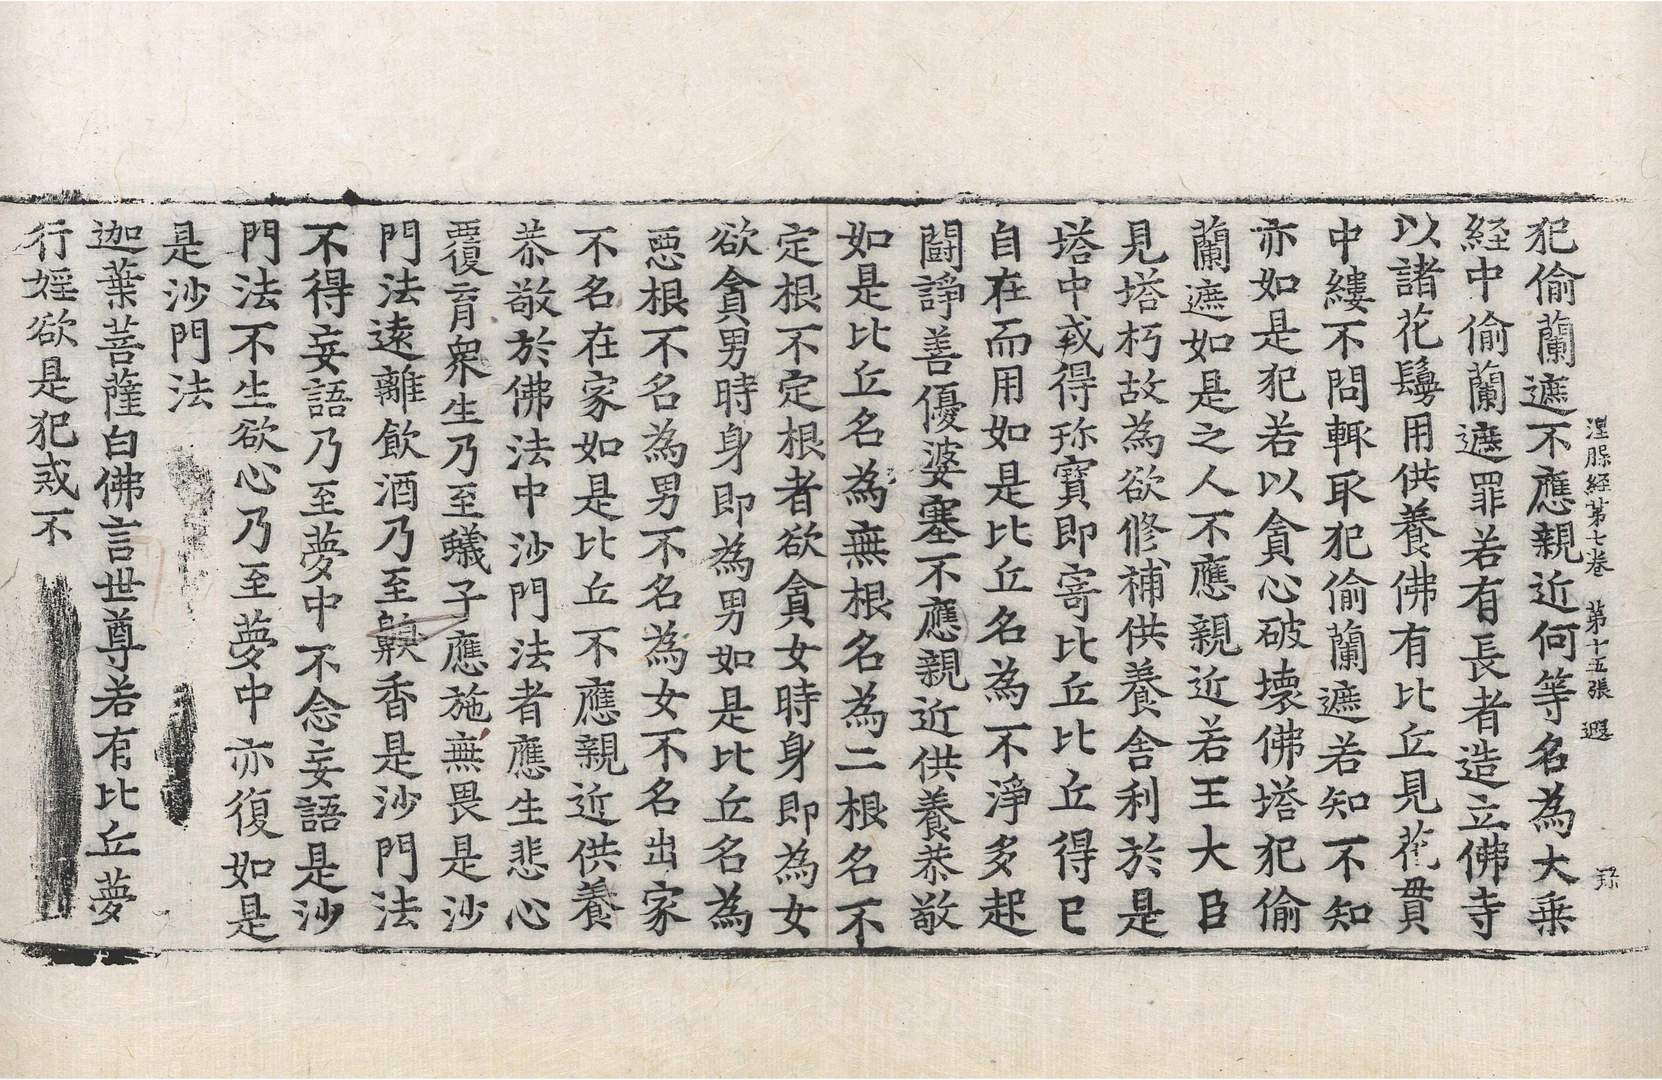 涅脲経苐七巻　第十五張　遐　琮
犯偷蘭遮不應親近何等名為大乗
経中偷蘭遮罪若有長者造立佛寺
以諸花鬘用供養佛有比丘見花貫
中縷不問輙取犯偷蘭遮若知不知
亦如是犯若以貪心破壊佛塔犯偷
蘭遮如是之人不應親近若王大臣
見塔朽故為欲修補供養舎利於是
塔中或得珎寶即寄比丘比丘得已
自在而用如是比丘名為不淨多起
闘諍善優婆塞不應親近供養恭敬
如是比丘名為無根名為二根名不
定根不定根者欲貪女時身即為女
欲貪男時身即為男如是比丘名為
惡根不名為男不名為女不名出家
不名在家如是比丘不應親近供養
恭敬於佛法中沙門法者應生悲心
覆育衆生乃至蟻子應施無畏是沙
門法遠離飲酒乃至嗅香是沙門法
不得妄語乃至夢中不念妄語是沙
門法不生欲心乃至夢中亦復如是
是沙門法
迦葉菩薩白佛言世尊若有比丘夢
行婬欲是犯戒不